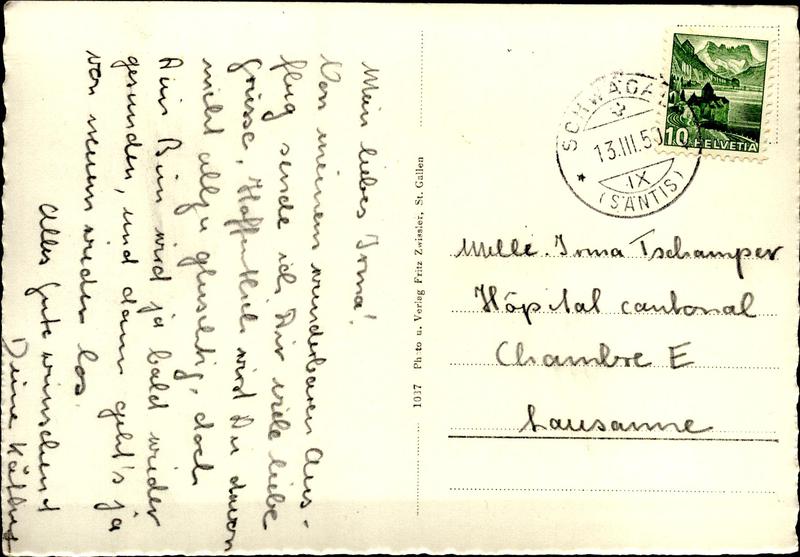 Mein liebes Irma!
Von meinem wunderbaren Aus-
flug sende ich Dir viele liebe
Grüsse. Hoffentlich wird Dir davon
nicht allzu gluschtig, doch
Dein Bein wird ja bald wieder
gesunden, und dann geht's ja
von neuem wieder los.
Alles Gute wünschend
Deine Käthy
1017 Photo u. Verlag Fritz Zwissler, St. Gallen
SCHWÄGA
13.III.50
IX
(SÄNTIS)
10 HELVETIA
Melle. Irma Tschamper
Hôpital cantonal
Chambre E
Lausanne